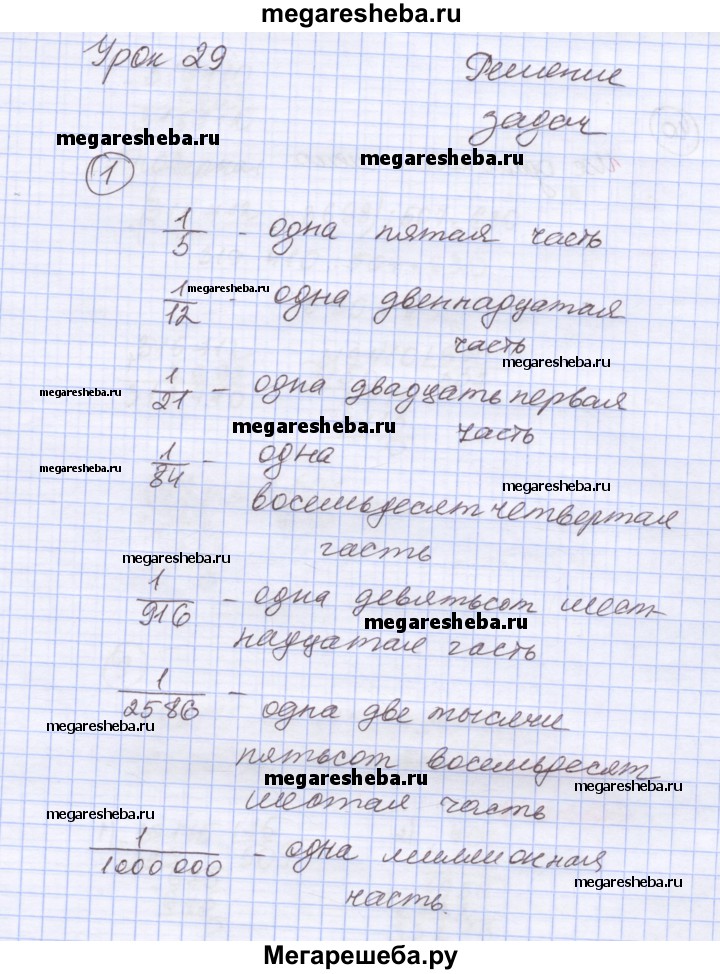 megaresheba.ru
Урок 29 Решение
задач
megaresheba.ru
megaresheba.ru
1
1/5 - одна пятая часть
megaresheba.ru
1/12 - одна двеннадцатая
часть
megaresheba.ru
megaresheba.ru
1/21 - одна двадцать первая
megaresheba.ru
часть
1/84 - одна
megaresheba.ru
megaresheba.ru
восемьдесят четвертая
часть
megaresheba.ru
1/916 - одна девятьсот шест
megaresheba.ru
надцатая часть
1/2586 - одна две тысячи
megaresheba.ru
пятьсот восемьдесят
megaresheba.ru
megaresheba.ru
шестая часть
megaresheba.ru
1/1000 000 - одна миллионная
megaresheba.ru
часть.
Мегарешеба.ру